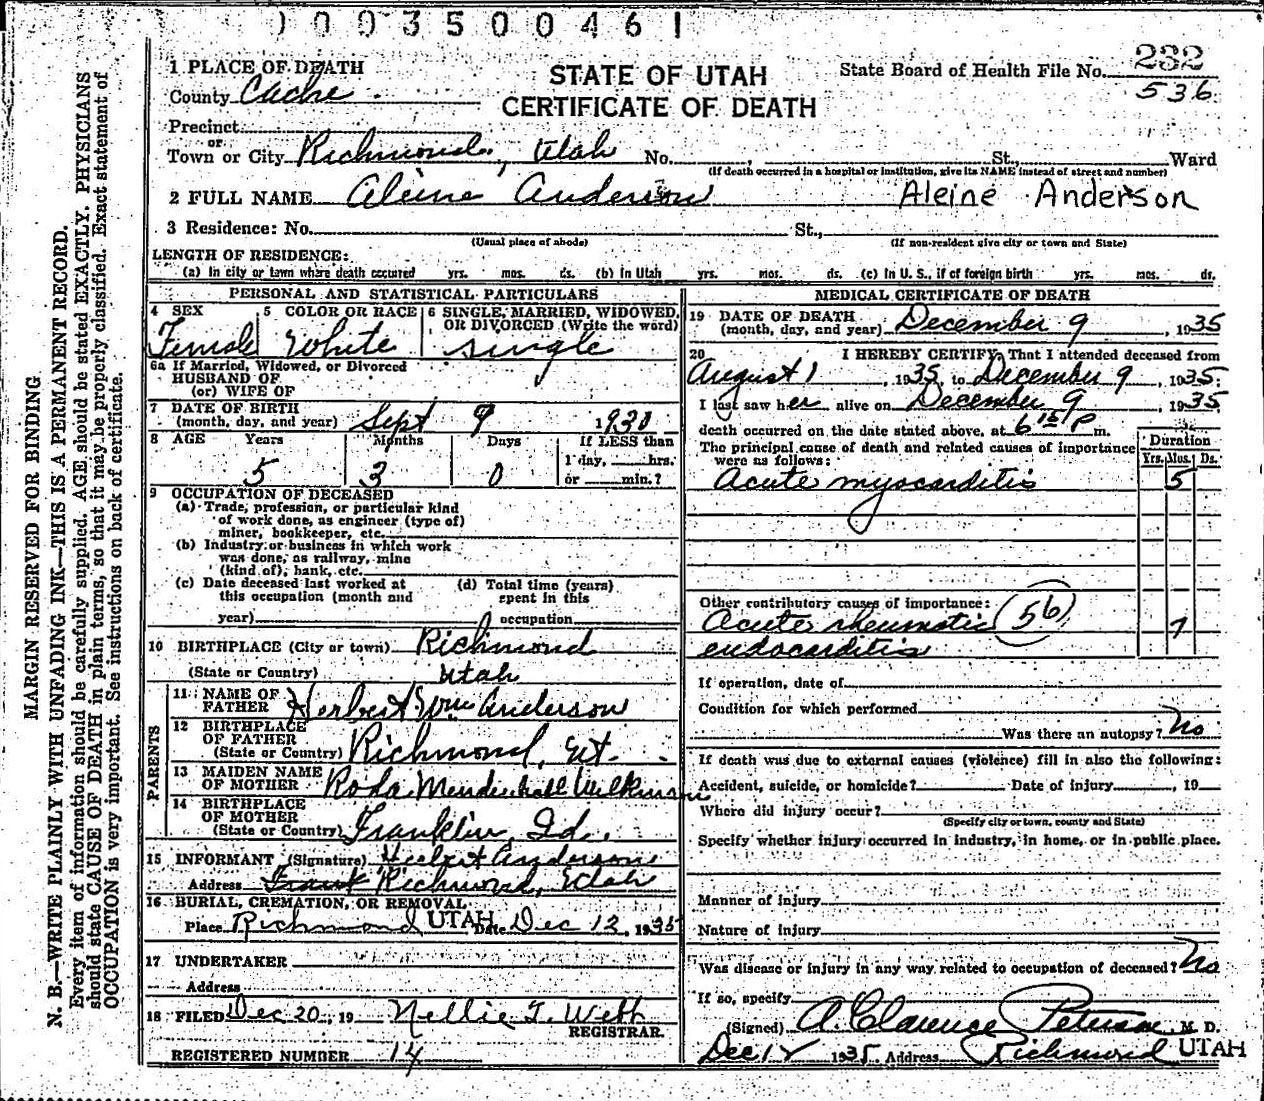 0093500461
1 PLACE OF DEATH
County Cache
STATE OF UTAH
CERTIFICATE OF DEATH
State Board of Health File No. 232
536
Precinct
or
Town or City Richmond, Utah No. , St., Ward
(If death occurred in a hospital or institution, give its NAME instead of street and number)
2 FULL NAME Aleine Anderson Aleine Anderson
3 Residence: No. St.,
(Usual place of abode) (If non-resident give city or town and State)
LENGTH OF RESIDENCE:
(a) In city or town where death occurred yrs. mos. ds. (b) In Utah yrs. mos. ds. (c) In U. S., if of foreign birth yrs. mos. ds.
PERSONAL AND STATISTICAL PARTICULARS
4 SEX
Female
5 COLOR OR RACE
White
6 SINGLE, MARRIED, WIDOWED,
OR DIVORCED (Write the word)
single
6a If Married, Widowed, or Divorced
HUSBAND OF
(or) WIFE OF
7 DATE OF BIRTH
(month, day, and year) Sept 9 1930
8 AGE Years Months Days If LESS than
1 day, hrs.
or min.?
5 3 0
9 OCCUPATION OF DECEASED
(a) Trade, profession, or particular kind
of work done, as engineer (type of)
miner, bookkeeper, etc.
(b) Industry or business in which work
was done, as railway, mine
(kind of), bank, etc.
(c) Date deceased last worked at
this occupation (month and
year)
(d) Total time (years)
spent in this
occupation
10 BIRTHPLACE (City or town) Richmond
(State or Country) Utah
PARENTS
11 NAME OF
FATHER Herbert Wm Anderson
12 BIRTHPLACE
OF FATHER
(State or Country) Richmond, Ut.
13 MAIDEN NAME
OF MOTHER Roda Mendenhall Wilkinson
14 BIRTHPLACE
OF MOTHER
(State or Country) Franklin, Id.
15 INFORMANT (Signature) Herbert Anderson
Address Frank Richmond, Utah
16 BURIAL, CREMATION, OR REMOVAL
Place Richmond UTAH Date Dec 12, 1935
17 UNDERTAKER
Address
18 FILED Dec 20, 19 Nellie T. Webb
REGISTRAR.
REGISTERED NUMBER 14
MEDICAL CERTIFICATE OF DEATH
19 DATE OF DEATH
(month, day, and year) December 9, 1935
20 I HEREBY CERTIFY, That I attended deceased from
August 1, 1935, to December 9, 1935;
I last saw her alive on December 9, 1935
death occurred on the date stated above, at 6 15 P m.
The principal cause of death and related causes of importance
were as follows:
Duration
Yrs. Mos. Ds.
Acute myocarditis 5
Other contributory causes of importance: 56
Acute rheumatic
endocarditis 7
If operation, date of
Condition for which performed
Was there an autopsy? No
If death was due to external causes (violence) fill in also the following:
Accident, suicide, or homicide? Date of injury , 19
Where did injury occur?
(Specify city or town, county and State)
Specify whether injury occurred in industry, in home, or in public place.
Manner of injury
Nature of injury
Was disease or injury in any way related to occupation of deceased? No
If so, specify
(Signed) A. Clarence Peterson, M. D.
Dec 12 1935. Address Richmond UTAH
MARGIN RESERVED FOR BINDING
N. B.—WRITE PLAINLY WITH UNFADING INK—THIS IS A PERMANENT RECORD.
Every item of information should be carefully supplied. AGE should be stated EXACTLY. PHYSICIANS
should state CAUSE OF DEATH in plain terms, so that it may be properly classified. Exact statement of
OCCUPATION is very important. See instructions on back of certificate.